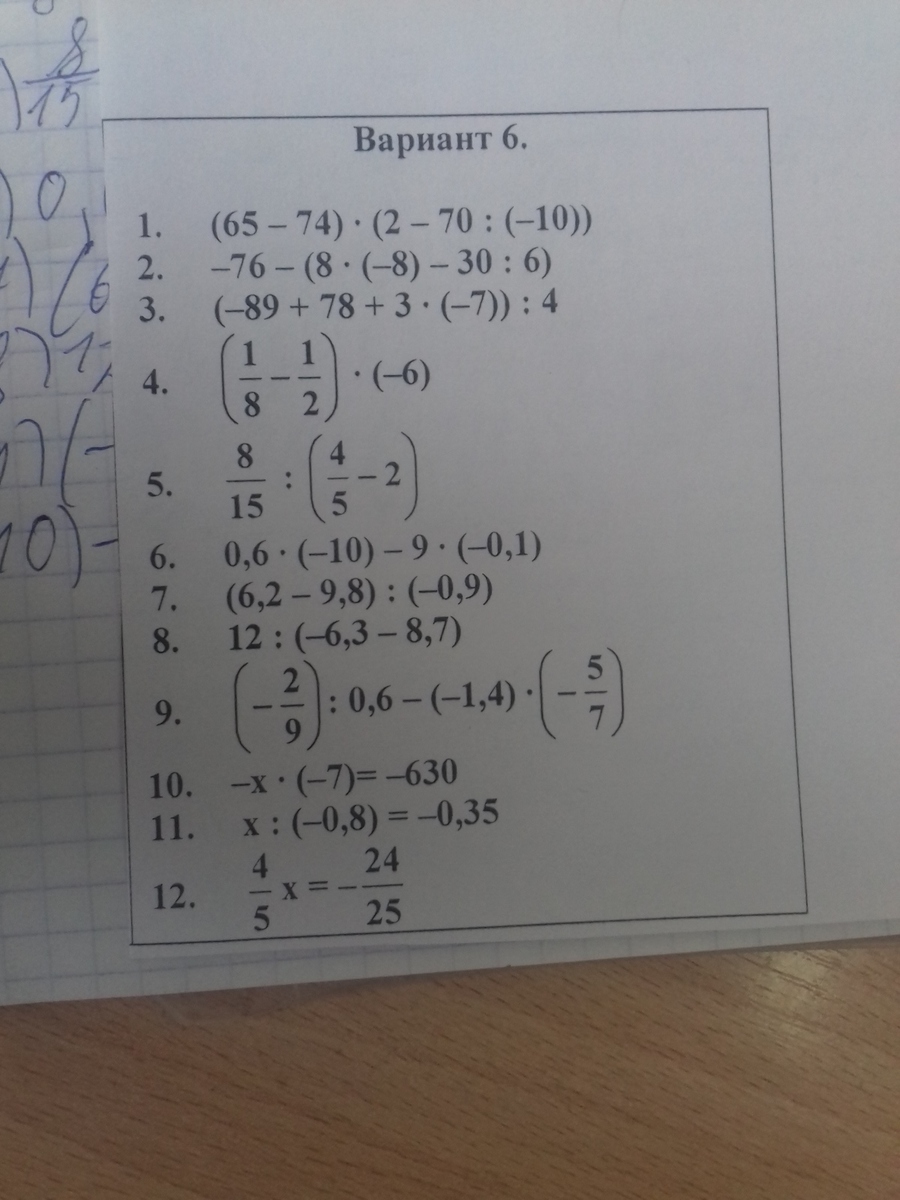 8
15
0,
(6
1,
(−
10) −
Вариант 6.
1. (65 – 74) · (2 – 70 : (–10))
2. –76 – (8 · (–8) – 30 : 6)
3. (–89 + 78 + 3 · (–7)) : 4
4. (1/8 – 1/2) · (–6)
5. 8/15 : (4/5 – 2)
6. 0,6 · (–10) – 9 · (–0,1)
7. (6,2 – 9,8) : (–0,9)
8. 12 : (–6,3 – 8,7)
9. (–2/9) : 0,6 – (–1,4) · (–5/7)
10. –x · (–7)= –630
11. x : (–0,8) = –0,35
12. 4/5 x = –24/25